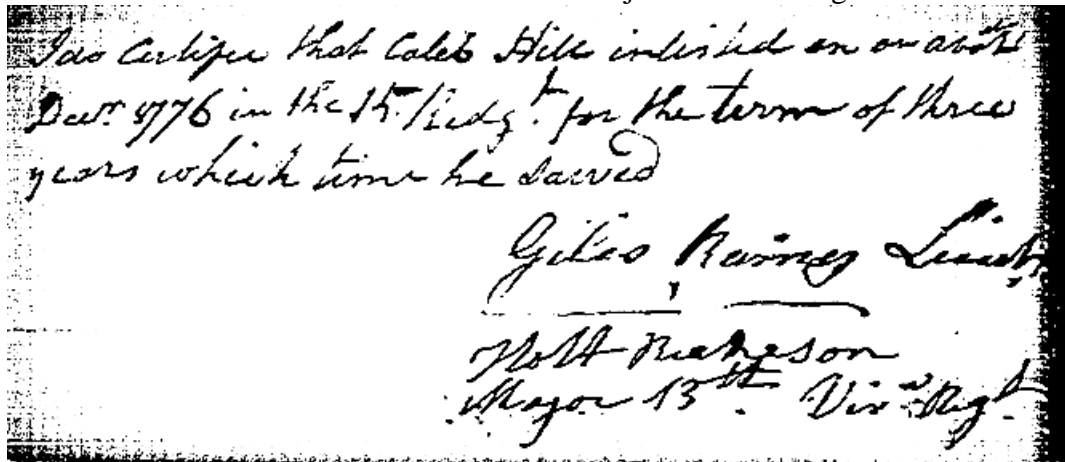 I do Certifie that Caleb Hill inlisted on or about
Decr. 1776 in the 15. Redgt. for the term of three
years which time he sarved
Giles Raines Lieut
Holt Richeson
Major 15th. Vira Regt